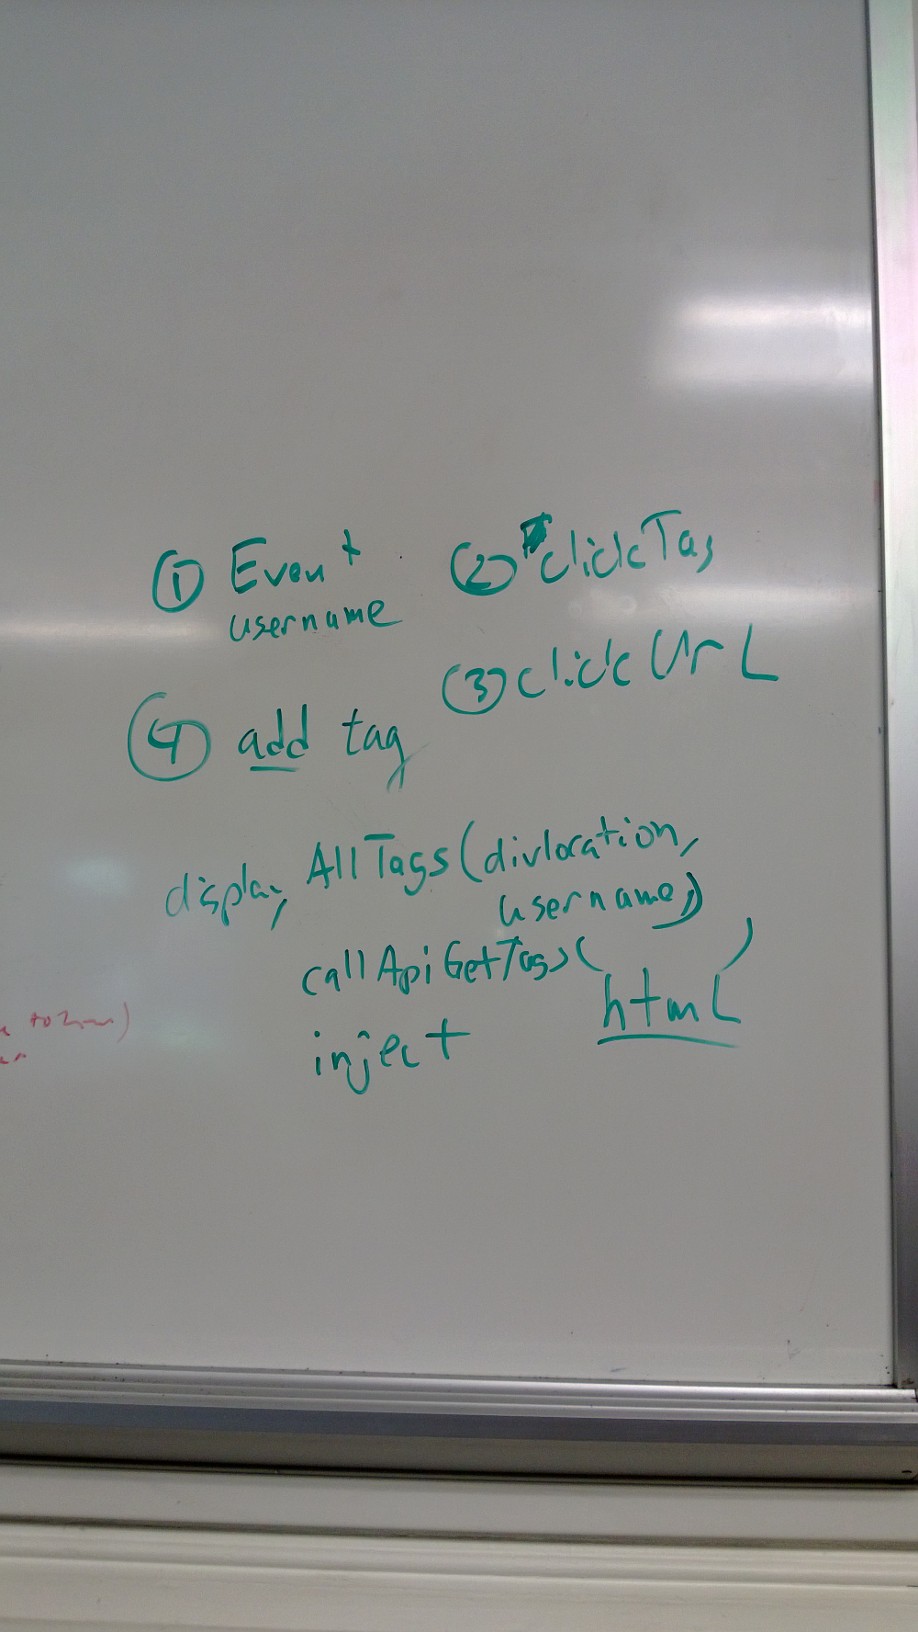 ① Event
username
② clickTag
③ clickUrL
④ add tag
display AllTags(divlocation,
username)
callApiGetTags( )
html
inject